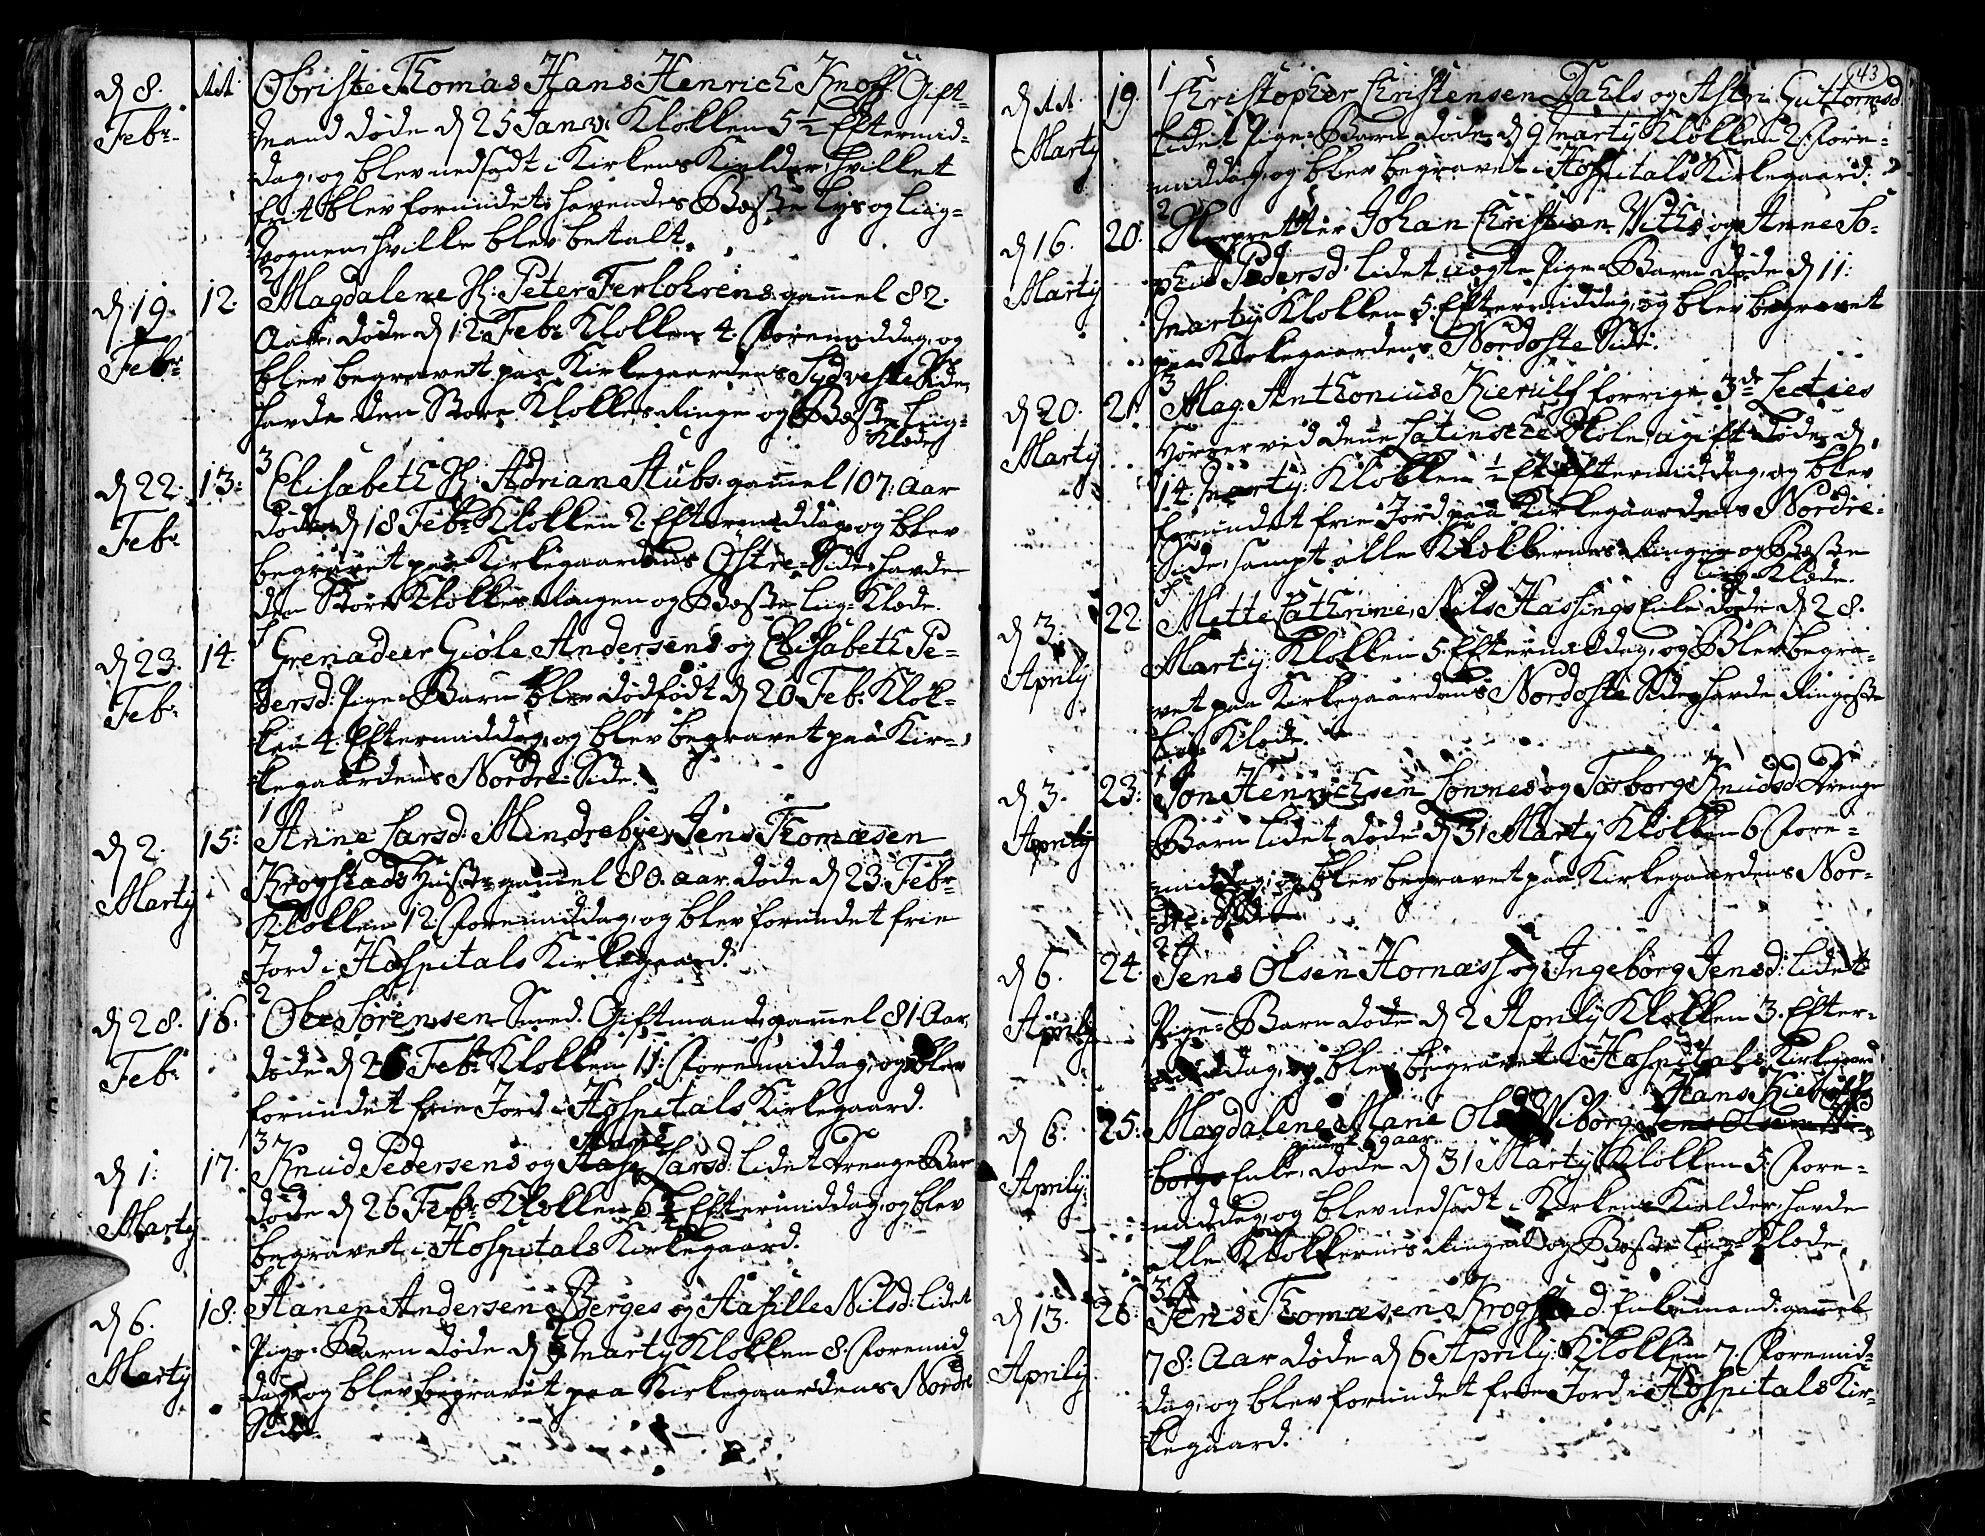 d 8. Febr. 11. Obriste Thomas Hans Henrich Knoff Gift-
mand døde d 25 Janv: Klokken 5 1/2 Eftermid-
dag, og blev nedsadt i Kirkens Kielder, hvilket
frit blev forundet, havendes Beste Lys og Liig-
Vognen, hville blev betalt.
d 19. Febr. 12. 2 Magdalene Sl: Peter Ferlohrens gamel 82.
Aar, døde d 12 Febr Klokken 4. Foremiddag, og
blev begravet paa Kirkegaardens Sydveste Side,
havde den Store Klokkes Ringe og Beste Liig-
Klæde
d 22. Febr. 13. 3 Elisabeth Sl: Adrian Stubs gamel 107: Aar
døde d 18 Febr Klokken 2. Eftermiddag, og blev
begravet paa Kirkegaardens Østre-Side, havde
den Store Klokkes Ringen og Beste Liig-Klæde.
d 23. Febr. 14. Grenadeer Giøle Andersens og Elisabeth Pe-
dersd: Pige-Barn blev dødfødt d 20 Feb: Klok-
ken 4 Eftermiddag, og blev begravet paa Kir-
kegaardens Nordre-Side.
d 2. Marty 15. 1 Anne Larsd: Mindrebye, Jens Thomæsen
Krogstads Hustr: gamel 80. aar døde d 23: Febr
Klokken 12: Foremiddag, og blev forundet frie
Jord i Hospitals Kirkegaard.
d 28. Febr 16. 2 Ole Sørensen Smed. Giftmand gamel 81 Aar,
døde d 26 Febr Klokken 11: Foremiddag, og blev
forundet frie Jord i Hospitals Kirkegaard.
d 1: Marty 17. 3 Knud Pedersens og Anne Larsd: lidet Drenge Barn
døde d 26 Febr Klokken 6 1/2 Eftermiddag, og blev
begravet i Hospitals Kirkegaard.
d 6. Marty 18. Aanen Andersens Berges og Aasille Nilsd: lidet
Pige-Barn døde d Marty Klokken 8. Foremid
dag, og blev begravet paa Kirkegaardens Nordre
Side.
43
d 11 Marty 19. 1 Christopher Christensen Dahls og Astri Guttormsd
lidet Pige-Barn døde d 9 Marty Klokken 2. Fore-
middag, og blev begravet i Hospitals Kirkegaard.
d 16. Marty 20. 2 Johan Christian Withs og Anne So-
phie Pedersd: lidet uægte Pige-Barn døde d 11:
Marty Klokken 5. Eftermiddag, og blev begravet
paa Kirkegaardens Nordoste Side.
d 20. Marty 21 3 Mag: Anthonius Kierulf forrige 3de Lecties
Hører ved denne Latinske Skole, ugift døde d
14. Marty: Klokken 1/2 Et Eftermiddag, og blev
forundet frie Jord paa Kirkegaardens Nordre-
Side, sampt alle Klokkernes Ringen og Beste
Liig-Klæde.
d 3. Aprily 22. Mette Cathrine, Nils Hassings Enke døde d 28.
Marty: Klokken 5 Eftermiddag, og Blev begra-
vet paa Kirkegaardens Nordoste Side, havde
Liig-Klæde.
d 3. Aprily 23: 1 Jon Henrichsen Lønnes og Torborg Knudsd Drenge
Barn lidet døde d 31 Marty Klokken 6 Fore-
middag, og blev begravet paa Kirkegaardens Nor-
dre-Side
d 6. Aprily 24. 2 Jens Olsen Hornæs og Ingeborg Jensd: lidet
Pige-Barn døde d 2 Aprily Klokken 3. Efter-
middag, og blev begravet i Hospitals Kirkegaard
d 6. Aprily. 25: Magdalene Marie Wiborg Jens Olsen
Hans
gamel 69 aar
borgs Enke, døde d 31 Marty Klokken 5 Fore-
middag, og blev nedsadt i Kirkens Kielder, havde
alle Klokkernes Ringen og Beste Liig-Klæde.
d 13. Aprily 26. Jens Thomæsen Krogstad. Enkemand gamel
78: Aar døde d 6 Aprily: Klokken 7. Foremid-
dag, og blev forundet frie Jord i Hospitals Kir-
kegaard.